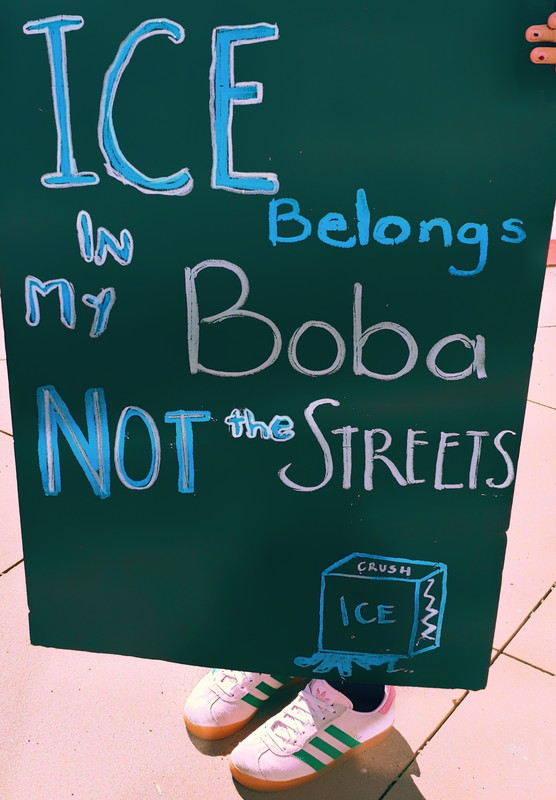 ICE
Belongs
IN
My
Boba
NOT the STREETS
CRUSH
ICE